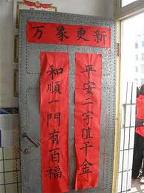 万象更新
平安二字值千金
和順一門有百福